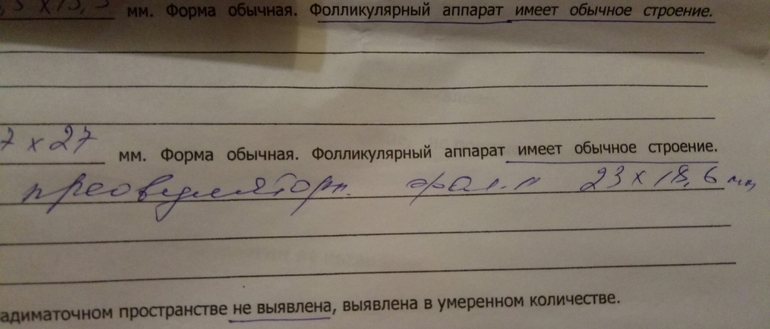 мм. Форма обычная. Фолликулярный аппарат имеет обычное строение.
7 х 27 мм. Форма обычная. Фолликулярный аппарат имеет обычное строение.
преовуляторн. фолл 23 х 18,6 мм
адиматочном пространстве не выявлена, выявлена в умеренном количестве.